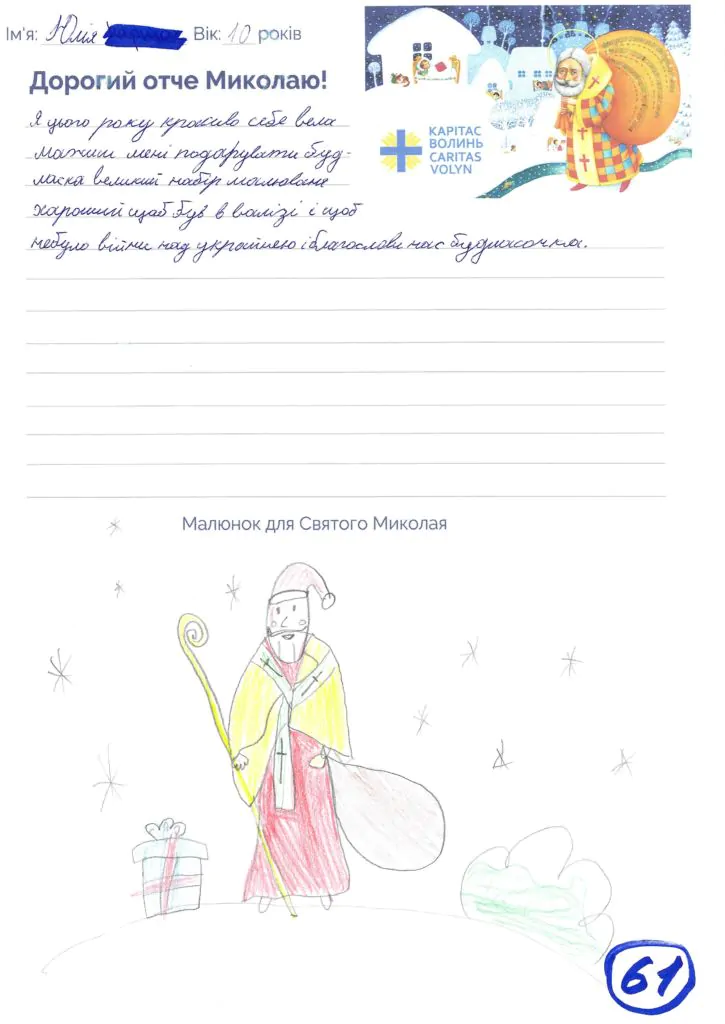 Ім'я: Юлія Вік: 10 років
Дорогий отче Миколаю!
Я цього року красиво себе вела
мажиш мені подарувати буд-
ласка великий набір малюване
хароший щоб був в валізі і щоб
небуло війни над україйною і благослови нас будьласочка.
КАРІТАС
ВОЛИНЬ
CARITAS
VOLYN
Малюнок для Святого Миколая
61